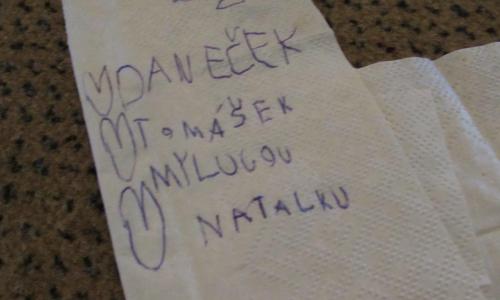 DANEČEK
TOMÁŠEK
MYLUGOU
NATALKU